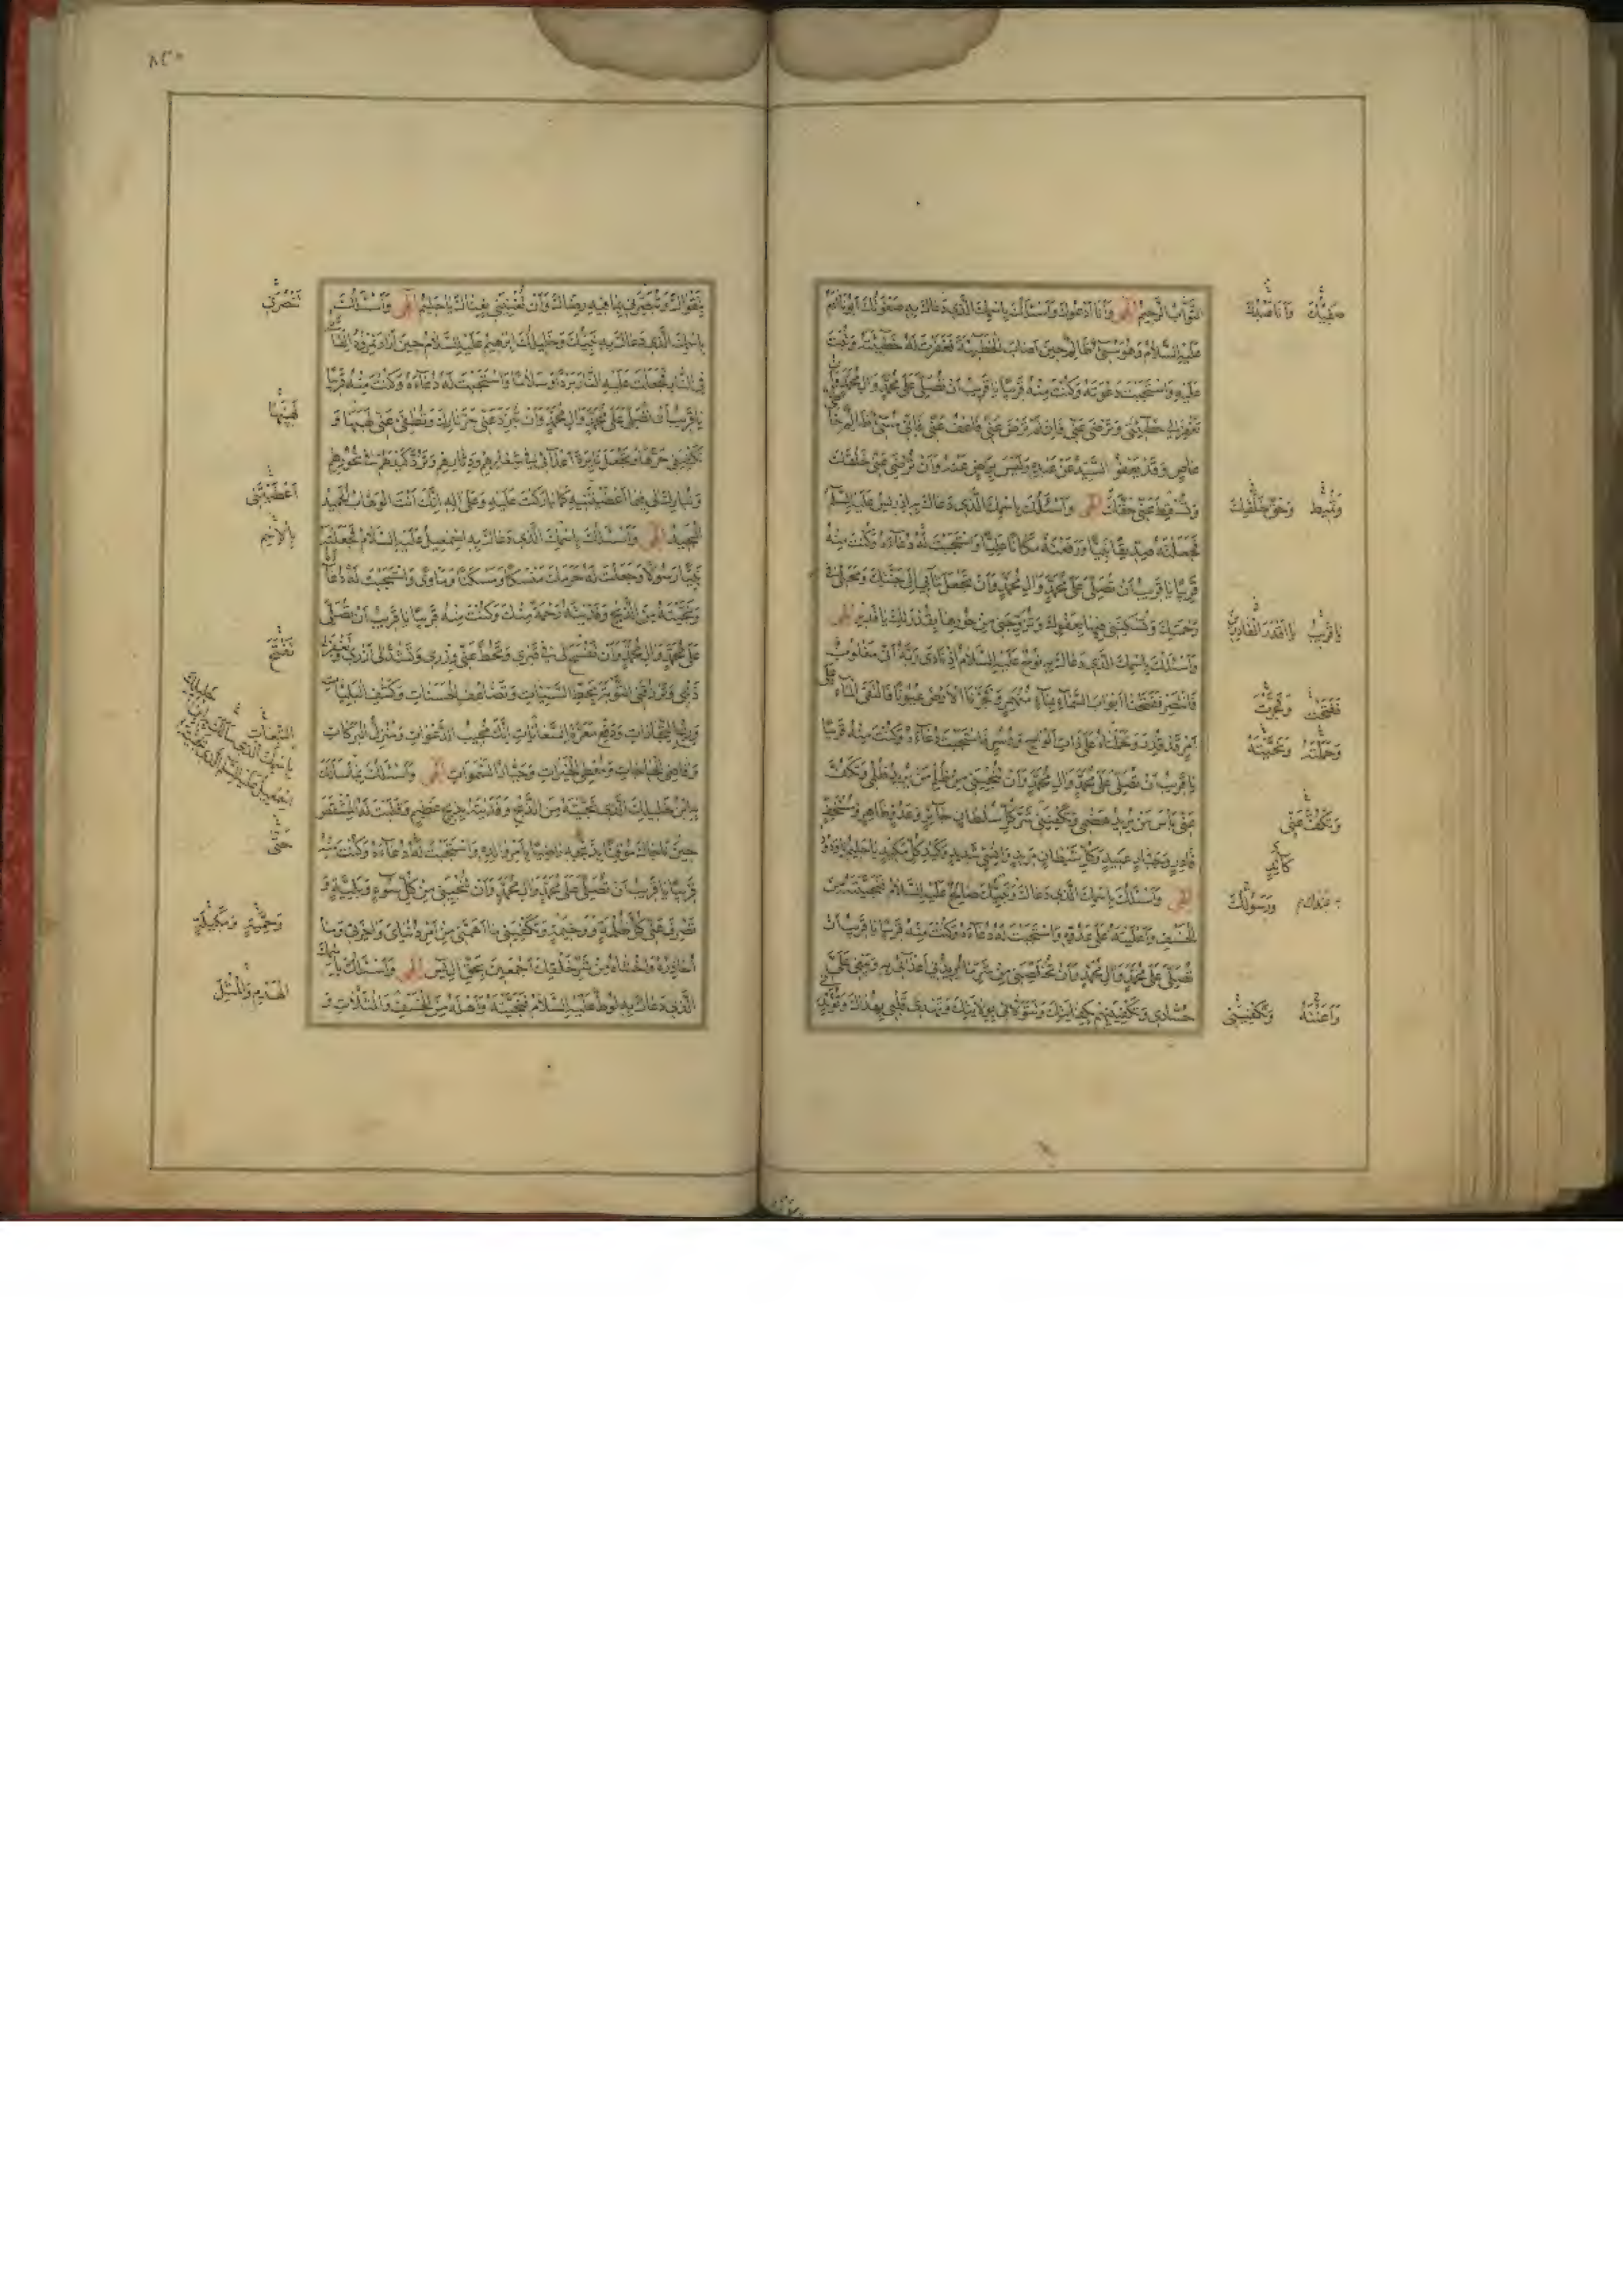 التَّوَّابُ الرَّحِيمُ إلهي وَأَنَا أَدْعُوكَ وَأَسْئَلُكَ بِاسْمِكَ الَّذِي دَعَاكَ بِهِ صَفْوَتُكَ أَبُونَا آدَمُ
عَلَيْهِ السَّلَامُ وَهُوَ مُسِيءٌ ظَالِمٌ حِينَ أَصَابَ الْخَطِيئَةَ فَغَفَرْتَ لَهُ خَطِيئَتَهُ وَتُبْتَ
عَلَيْهِ وَاسْتَجَبْتَ دَعْوَتَهُ وَكُنْتَ مِنْهُ قَرِيبًا يَا قَرِيبُ أَنْ تُصَلِّيَ عَلَى مُحَمَّدٍ وَآلِ مُحَمَّدٍ وَأَنْ
تَغْفِرَ لِي خَطِيئَتِي وَتَرْضَى عَنِّي فَإِنْ لَمْ تَرْضَ عَنِّي فَاعْفُ عَنِّي فَإِنِّي مُسِيءٌ ظَالِمٌ خَاطِئٌ
عَاصٍ وَقَدْ يَعْفُو السَّيِّدُ عَنْ عَبْدِهِ وَلَيْسَ بِرَاضٍ عَنْهُ وَأَنْ تُرْضِيَ عَنِّي خَلْقَكَ
وَتُسْقِطَ عَنِّي حَقَّكَ إلهي وَأَسْئَلُكَ بِاسْمِكَ الَّذِي دَعَاكَ بِهِ إِدْرِيسُ عَلَيْهِ السَّلَامُ
فَجَعَلْتَهُ صِدِّيقًا نَبِيًّا وَرَفَعْتَهُ مَكَانًا عَلِيًّا وَاسْتَجَبْتَ لَهُ دُعَاءَهُ وَكُنْتَ مِنْهُ
قَرِيبًا يَا قَرِيبُ أَنْ تُصَلِّيَ عَلَى مُحَمَّدٍ وَآلِ مُحَمَّدٍ وَأَنْ تَجْعَلَ مَآبِي إِلَى جَنَّتِكَ وَمَحَلِّي فِي
رَحْمَتِكَ وَتُسْكِنَنِي فِيهَا بِعَفْوِكَ وَتُزَوِّجَنِي مِنْ حُورِهَا بِقُدْرَتِكَ يَا قَدِيرُ إلهي
وَأَسْئَلُكَ بِاسْمِكَ الَّذِي دَعَاكَ بِهِ نُوحٌ عَلَيْهِ السَّلَامُ إِذْ نَادَى رَبَّهُ أَنِّي مَغْلُوبٌ
فَانْتَصِرْ فَفَتَحْنَا أَبْوَابَ السَّمَاءِ بِمَاءٍ مُنْهَمِرٍ وَفَجَّرْنَا الْأَرْضَ عُيُونًا فَالْتَقَى الْمَاءُ عَلَى
أَمْرٍ قَدْ قُدِرَ وَحَمَلْنَاهُ عَلَى ذَاتِ أَلْوَاحٍ وَدُسُرٍ فَاسْتَجَبْتَ دُعَاءَهُ وَكُنْتَ مِنْهُ قَرِيبًا
يَا قَرِيبُ أَنْ تُصَلِّيَ عَلَى مُحَمَّدٍ وَآلِ مُحَمَّدٍ وَأَنْ تُنْجِيَنِي مِنْ ظُلْمِ مَنْ يُرِيدُ ظُلْمِي وَتَكُفَّ
عَنِّي بَأْسَ مَنْ يُرِيدُ هَضْمِي وَتَكْفِيَنِي شَرَّ كُلِّ سُلْطَانٍ جَائِرٍ وَعَدُوٍّ قَاهِرٍ وَمُسْتَخِفٍّ
قَادِرٍ وَجَبَّارٍ عَنِيدٍ وَكُلِّ شَيْطَانٍ مَرِيدٍ وَإِنْسِيٍّ شَدِيدٍ وَكَيْدِ كُلِّ مَكِيدٍ يَا حَلِيمُ يَا وَدُودُ
إلهي وَأَسْئَلُكَ بِاسْمِكَ الَّذِي دَعَاكَ عَبْدُكَ وَنَبِيُّكَ صَالِحٌ عَلَيْهِ السَّلَامُ فَنَجَّيْتَهُ مِنَ
الْخَسْفِ وَأَعْلَيْتَهُ عَلَى عَدُوِّهِ وَاسْتَجَبْتَ لَهُ دُعَاءَهُ وَكُنْتَ مِنْهُ قَرِيبًا يَا قَرِيبُ أَنْ
تُصَلِّيَ عَلَى مُحَمَّدٍ وَآلِ مُحَمَّدٍ وَأَنْ تُخَلِّصَنِي مِنْ شَرِّ مَا يُرِيدُ بِي أَعْدَائِي
حُسَّادِي وَتَكْفِيَنِيهِمْ بِكِفَايَتِكَ وَتَتَوَلَّانِي بِوِلَايَتِكَ وَتَهْدِيَ قَلْبِي بِهُدَاكَ وَتُؤَيِّدَنِي
صَفِيُّكَ
وَحَقَّ خَلْقِكَ
يَا قَرِيبُ
فَفَتَحْتَ وَفَجَّرْتَ
وَحَمَلْتَهُ وَنَجَّيْتَهُ
وَتَكُفَّ عَنِّي
كَائِدٍ
وَرَسُولُكَ
وَتَكْفِيَنِي
٨٣٠
بِتَقْوَاكَ وَتُبَصِّرَنِي بِمَا فِيهِ رِضَاكَ وَأَنْ تُغْنِيَنِي بِغِنَاكَ يَا حَلِيمُ إلهي وَأَسْئَلُكَ
بِاسْمِكَ الَّذِي دَعَاكَ بِهِ نَبِيُّكَ وَخَلِيلُكَ إِبْرَهِيمُ عَلَيْهِ السَّلَامُ حِينَ أَرَادَ نَمْرُودُ إِلْقَاءَهُ
فِي النَّارِ فَجَعَلْتَ عَلَيْهِ النَّارَ بَرْدًا وَسَلَامًا وَاسْتَجَبْتَ لَهُ دُعَاءَهُ وَكُنْتَ مِنْهُ قَرِيبًا
يَا قَرِيبُ أَنْ تُصَلِّيَ عَلَى مُحَمَّدٍ وَآلِ مُحَمَّدٍ وَأَنْ تُبَرِّدَ عَنِّي حَرَّ نَارِكَ وَتُطْفِئَ عَنِّي لَهِيبَهَا وَ
تَكْفِيَنِي حَرَّهَا وَتَجْعَلَ نَائِرَةَ أَعْدَائِي فِي شِعَارِهِمْ وَدِثَارِهِمْ وَتَرُدَّ كَيْدَهُمْ فِي نُحُورِهِمْ
وَتُبَارِكَ لِي فِيمَا أَعْطَيْتَنِيهِ كَمَا بَارَكْتَ عَلَيْهِ وَعَلَى آلِهِ إِنَّكَ أَنْتَ الْوَهَّابُ الْحَمِيدُ
الْمَجِيدُ إلهي وَأَسْئَلُكَ بِاسْمِكَ الَّذِي دَعَاكَ بِهِ إِسْمَعِيلُ عَلَيْهِ السَّلَامُ فَجَعَلْتَهُ
نَبِيًّا رَسُولًا وَجَعَلْتَ لَهُ حَرَمَكَ مَنْسَكًا وَمَسْكَنًا وَمَأْوًى وَاسْتَجَبْتَ لَهُ دُعَاءَهُ
وَنَجَّيْتَهُ مِنَ الذَّبْحِ وَفَدَيْتَهُ رَحْمَةً مِنْكَ وَكُنْتَ مِنْهُ قَرِيبًا يَا قَرِيبُ أَنْ تُصَلِّيَ
عَلَى مُحَمَّدٍ وَآلِ مُحَمَّدٍ وَأَنْ تَفْسَحَ لِي فِي قَبْرِي وَتَحُطَّ عَنِّي وِزْرِي وَتَشُدَّ لِي أَزْرِي وَتَغْفِرَ لِي
ذَنْبِي وَتَرْزُقَنِي التَّوْبَةَ بِحَطِّ السَّيِّئَاتِ وَتَضَاعُفِ الْحَسَنَاتِ وَكَشْفِ الْبَلِيَّاتِ
وَرِبْحِ التِّجَارَاتِ وَدَفْعِ مَعَرَّةِ السِّعَايَاتِ إِنَّكَ مُجِيبُ الدَّعَوَاتِ وَمُنْزِلُ الْبَرَكَاتِ
وَقَاضِي الْحَاجَاتِ وَمُعْطِي الْخَيْرَاتِ وَجَبَّارُ السَّمَوَاتِ إلهي وَأَسْئَلُكَ بِمَا سَأَلَكَ
بِهِ ابْنُ خَلِيلِكَ الَّذِي نَجَّيْتَهُ مِنَ الذَّبْحِ وَفَدَيْتَهُ بِذِبْحٍ عَظِيمٍ وَقَلَبْتَ لَهُ الْمِشْقَصَ
حِينَ نَاجَاكَ مُوقِنًا بِذَبْحِهِ رَاضِيًا بِأَمْرِ وَالِدِهِ وَاسْتَجَبْتَ لَهُ دُعَاءَهُ وَكُنْتَ مِنْهُ
قَرِيبًا يَا قَرِيبُ أَنْ تُصَلِّيَ عَلَى مُحَمَّدٍ وَآلِ مُحَمَّدٍ وَأَنْ تُنْجِيَنِي مِنْ كُلِّ سُوءٍ وَبَلِيَّةٍ وَ
تَصْرِفَ عَنِّي كُلَّ ظُلْمَةٍ وَخِيمَةٍ وَتَكْفِيَنِي مَا أَهَمَّنِي مِنْ أَمْرِ دُنْيَايَ وَآخِرَتِي وَمَا
أُحَاذِرُهُ وَأَخْشَاهُ وَمِنْ شَرِّ خَلْقِكَ أَجْمَعِينَ بِحَقِّ آلِ يس إلهي وَأَسْئَلُكَ بِاسْمِكَ
الَّذِي دَعَاكَ بِهِ لُوطٌ عَلَيْهِ السَّلَامُ فَنَجَّيْتَهُ وَأَهْلَهُ مِنَ الْخَسْفِ وَالْمَثُلَاتِ وَ
تَنْصُرَنِي
لَهَبَهَا
أَعْطَيْتَنِي
تَفْتَحَ
التَّبِعَاتِ
حَتَّى
الْهَدْمِ وَالْمَثُلِ